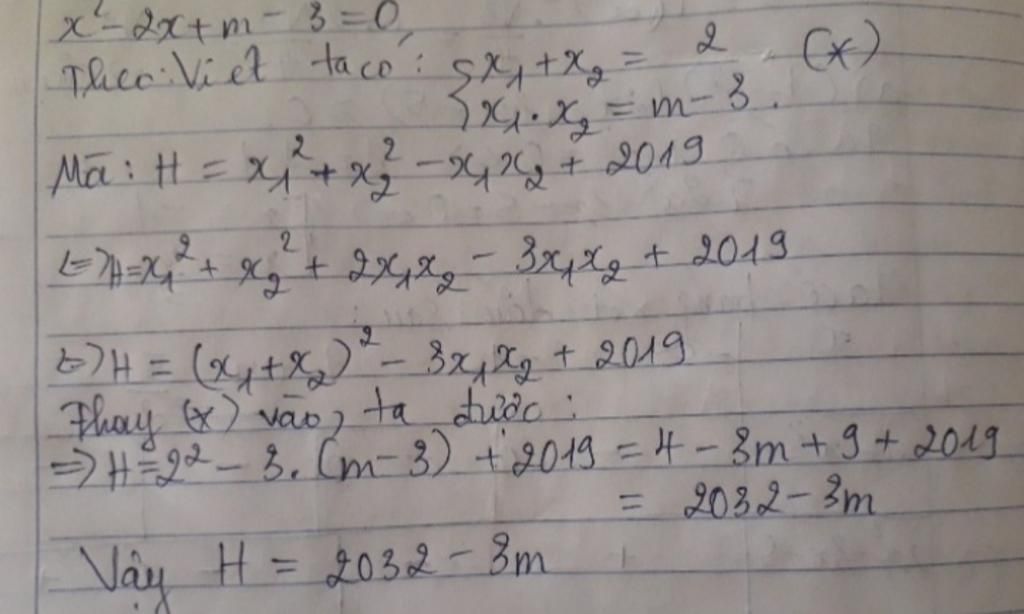 x² - 2x + m - 3 = 0,
Theo: Viet ta có: { x₁ + x₂ = 2 (*)
{ x₁ . x₂ = m - 3 .
Mà : H = x₁² + x₂² - x₁x₂ + 2019
<=> H = x₁² + x₂² + 2x₁x₂ - 3x₁x₂ + 2019
<=> H = (x₁ + x₂)² - 3x₁x₂ + 2019
Thay (*) vào, ta được :
=> H = 2² - 3. (m - 3) + 2019 = 4 - 3m + 9 + 2019
= 2032 - 3m
Vậy H = 2032 - 3m